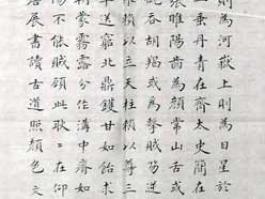 則為河嶽上則為日星於
一垂丹青在齊太史在
張睢陽齒為顏常山舌或
吞胡羯或為擊賊笏逆
賴以立天柱賴以尊三
送窮北鼎鑊甘如飴求
蒙霧露分作溝中瘠如
陽不能賊顧此耿〻在仰
展書讀古道照顏色文